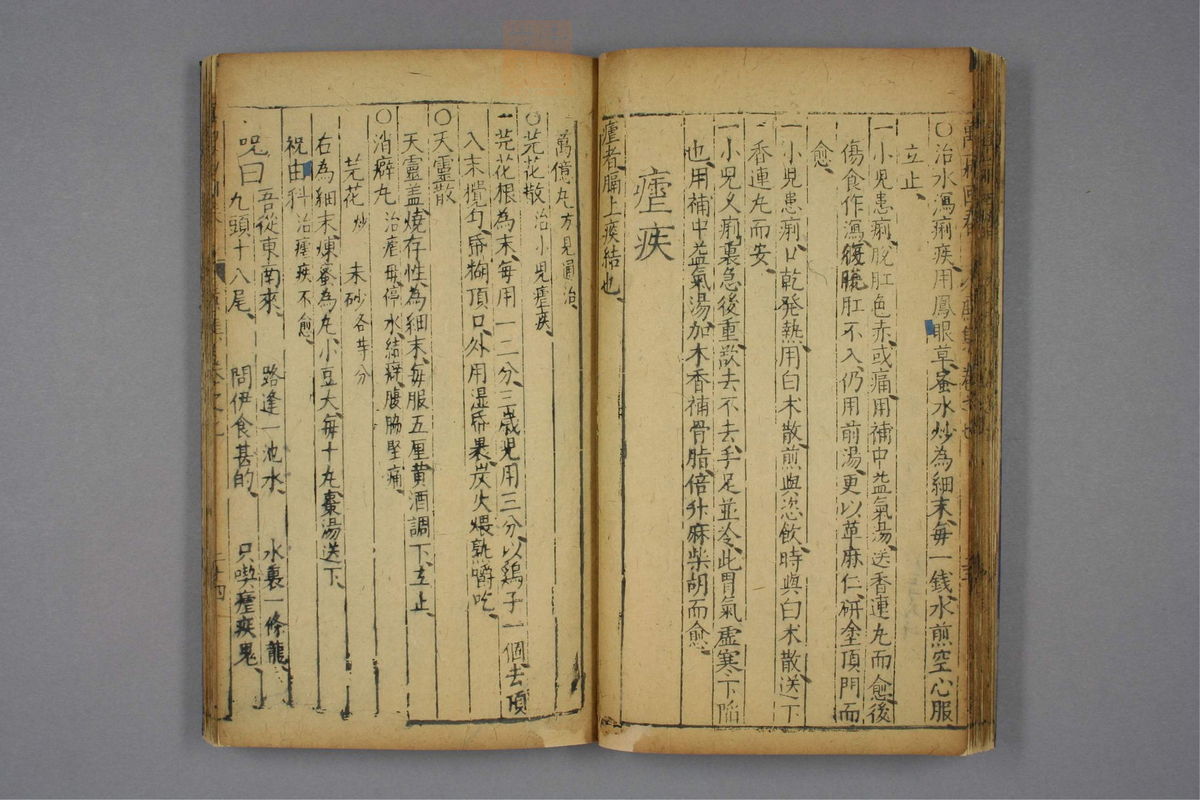 〇治水瀉痢疾用鳳眼草蜜水炒為細末每一錢水煎空心服
立止
一小児患痢脫肛色赤或痛用補中益氣湯送香連丸而愈後
傷食作瀉復脫肛不入仍用前湯更以草麻仁研塗頂門而
愈
一小児患痢口乾発熱用白术散煎與恣飲時與白术散送下
香連丸而安
一小児久痢裏急後重欲去不去手足並冷此胃氣虛寒下陷
也用補中益氣湯加木香補骨脂倍升麻柴胡而愈
瘧疾
瘧者膈上痰結也
萬億丸方見通治
〇芫花散 治小児瘧疾
一芫花根為末每用一二分三歲児用三分以鷄子一個去頂
入末攪勻昏糊頂口外用湿昏裹炭火煨熟嚼吃
〇天靈散
天靈盖燒存性為細末每服五厘黄酒調下立止
〇消癖丸 治瘧母停水結癖腹脇堅痛
芫花炒 朱砂各等分
右為細末煉蜜為丸小豆大每十丸棗湯送下
祝由科 治瘧疾不愈
咒曰 吾從東南來 路逢一池水 水裏一條龍
九頭十八尾 問伊食甚的 只喫瘧疾鬼